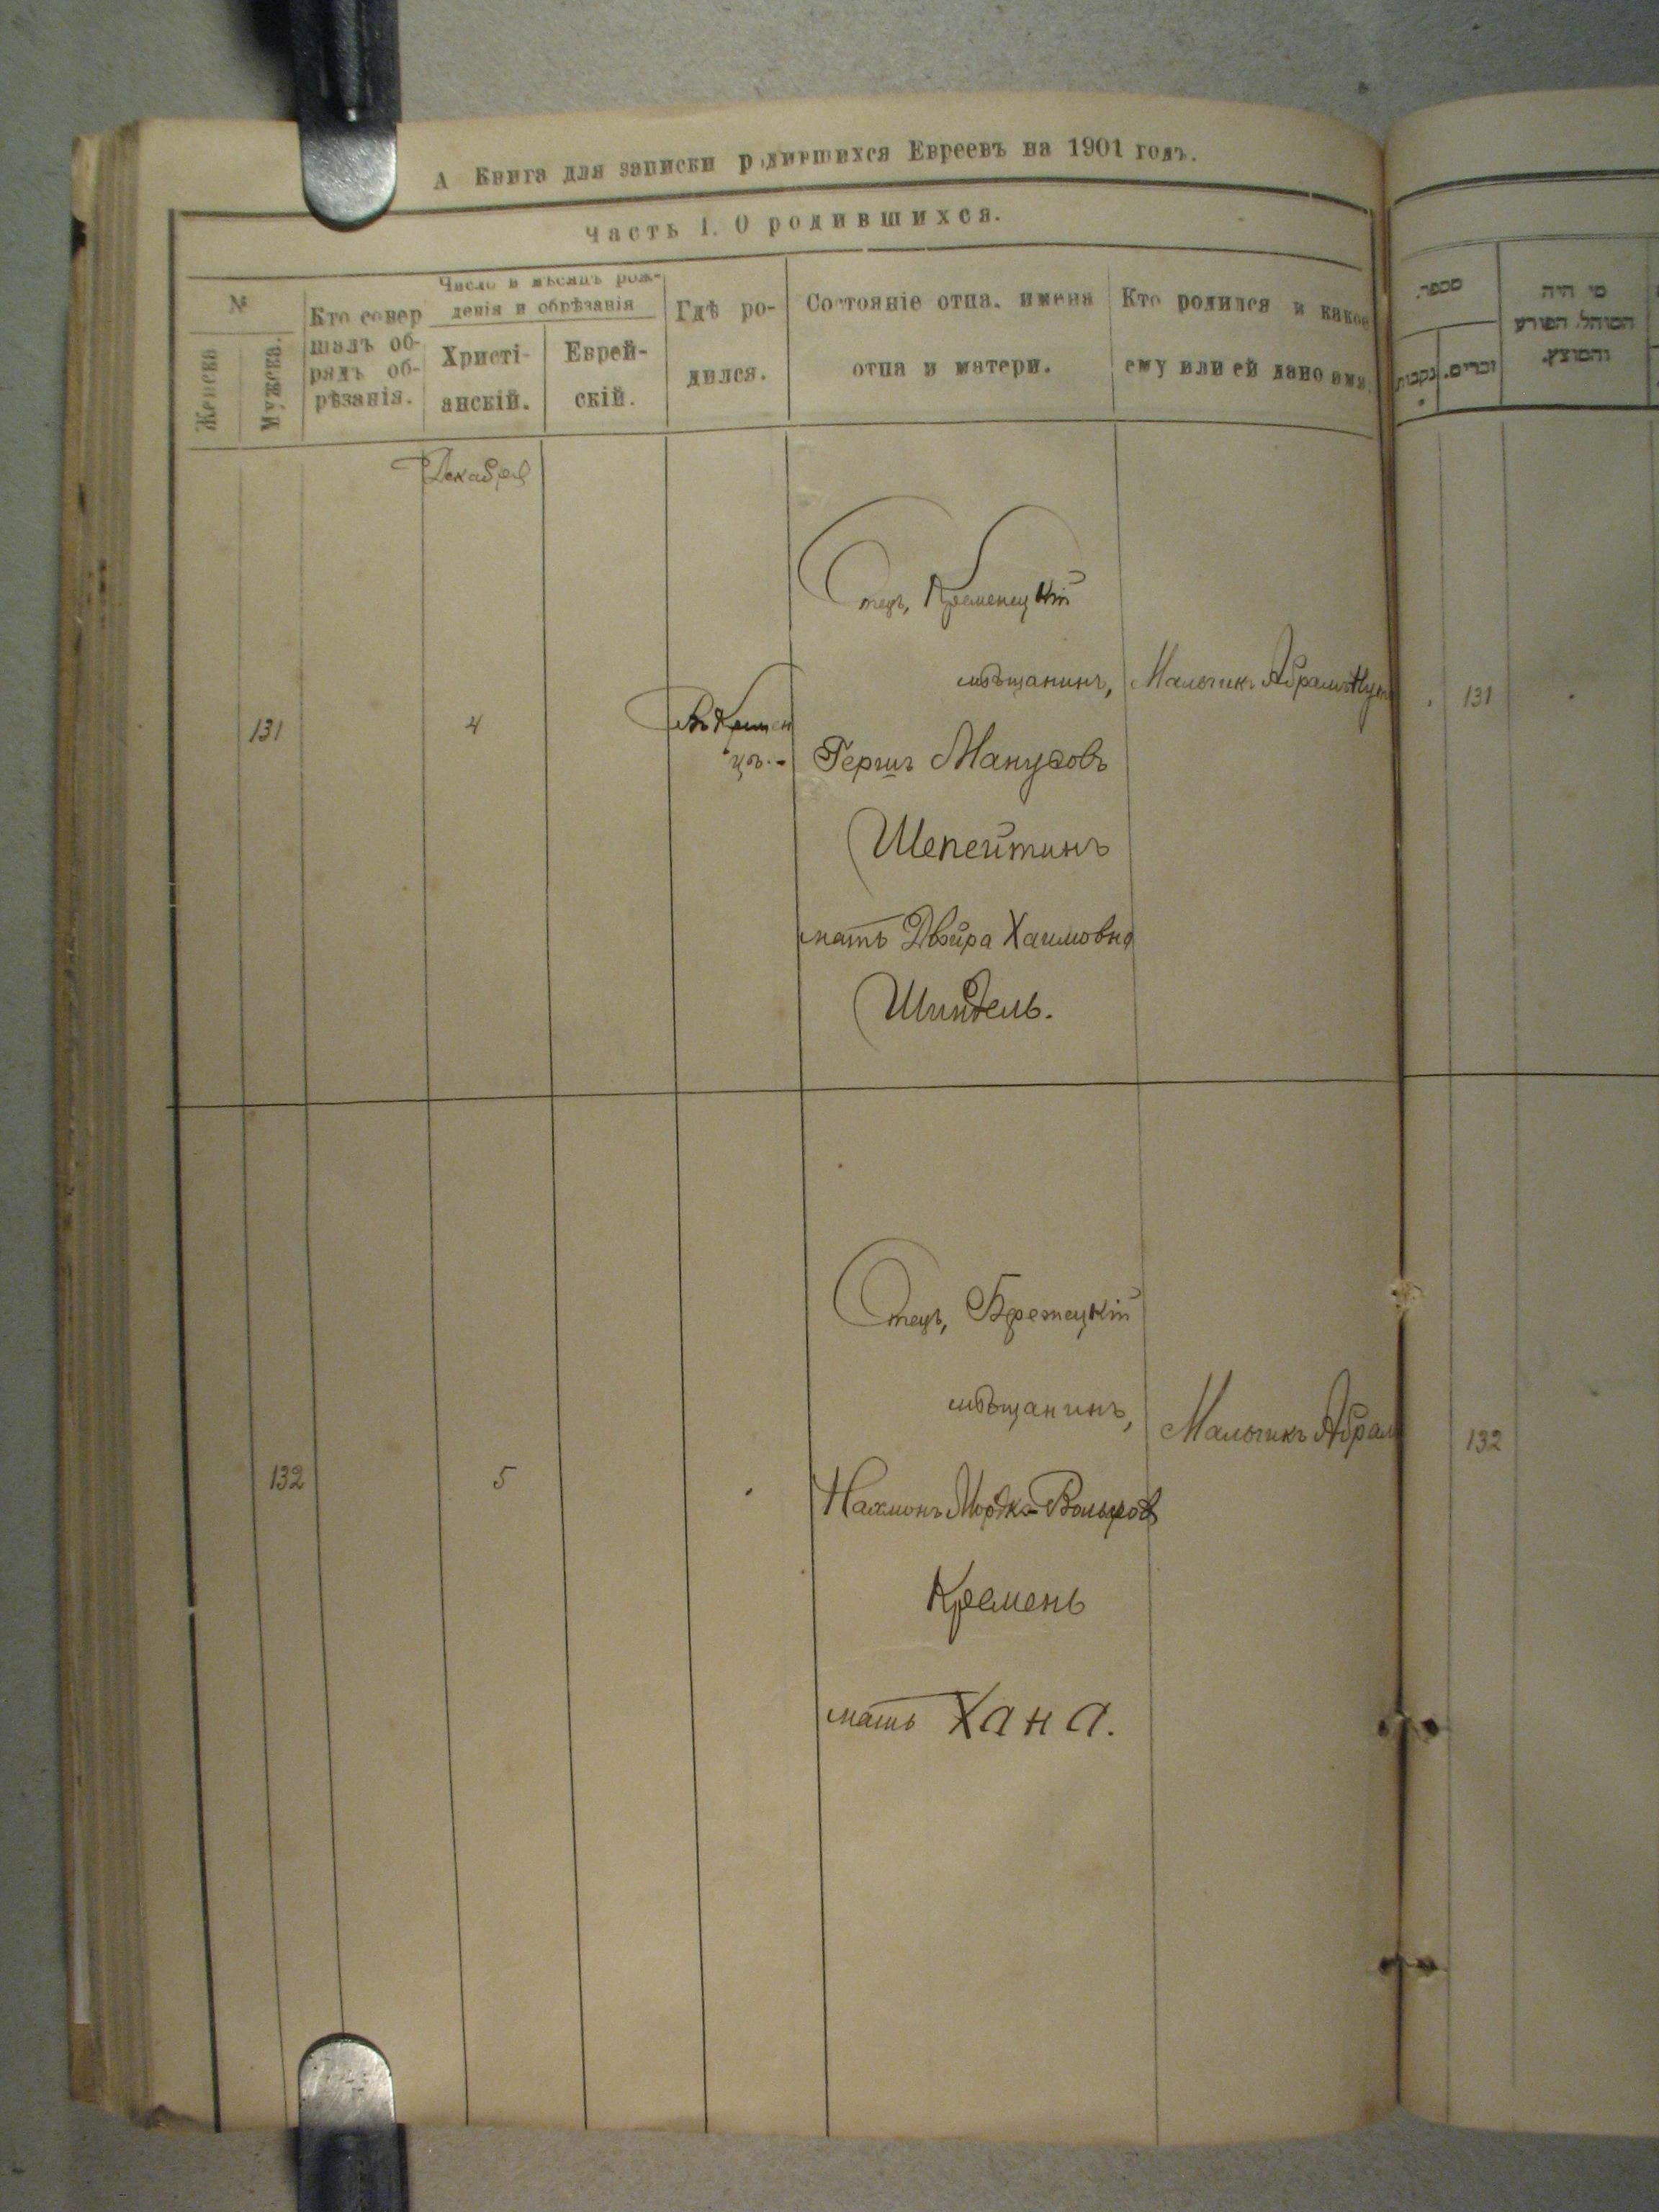 А Книга для записки родившихся Евреевъ на 1901 годъ.
Часть 1. О родившихся.
№
Женска
Мужска.
Кто совер
шалъ об-
рядъ об-
рѣзанія.
Число и мѣсяцъ рож-
денія и обрѣзанія
Христі-
анскій.
Еврей-
скій.
Гдѣ ро-
дился.
Состояніе отца, имена
отца и матери.
Кто родился и какое
ему или ей дано имя.
מספר.
נקבות
זכרים.
מי היה
המוהל, הפורע
והמוצץ.
Декабря
131
4
Въ Кремен
цѣ.-
Отецъ, Кременецкій
мѣщанинъ,
Гершъ Манусовъ
Шепейтинъ
мать Двойра Хаимовна
Шиндель.
Мальчикъ Абрамъ
131
132
5
Отецъ, Бережецкій
мѣщанинъ,
Нахмонъ Мордко-Вольфов
Кремень
мать Хана.
Мальчикъ Абрам
132